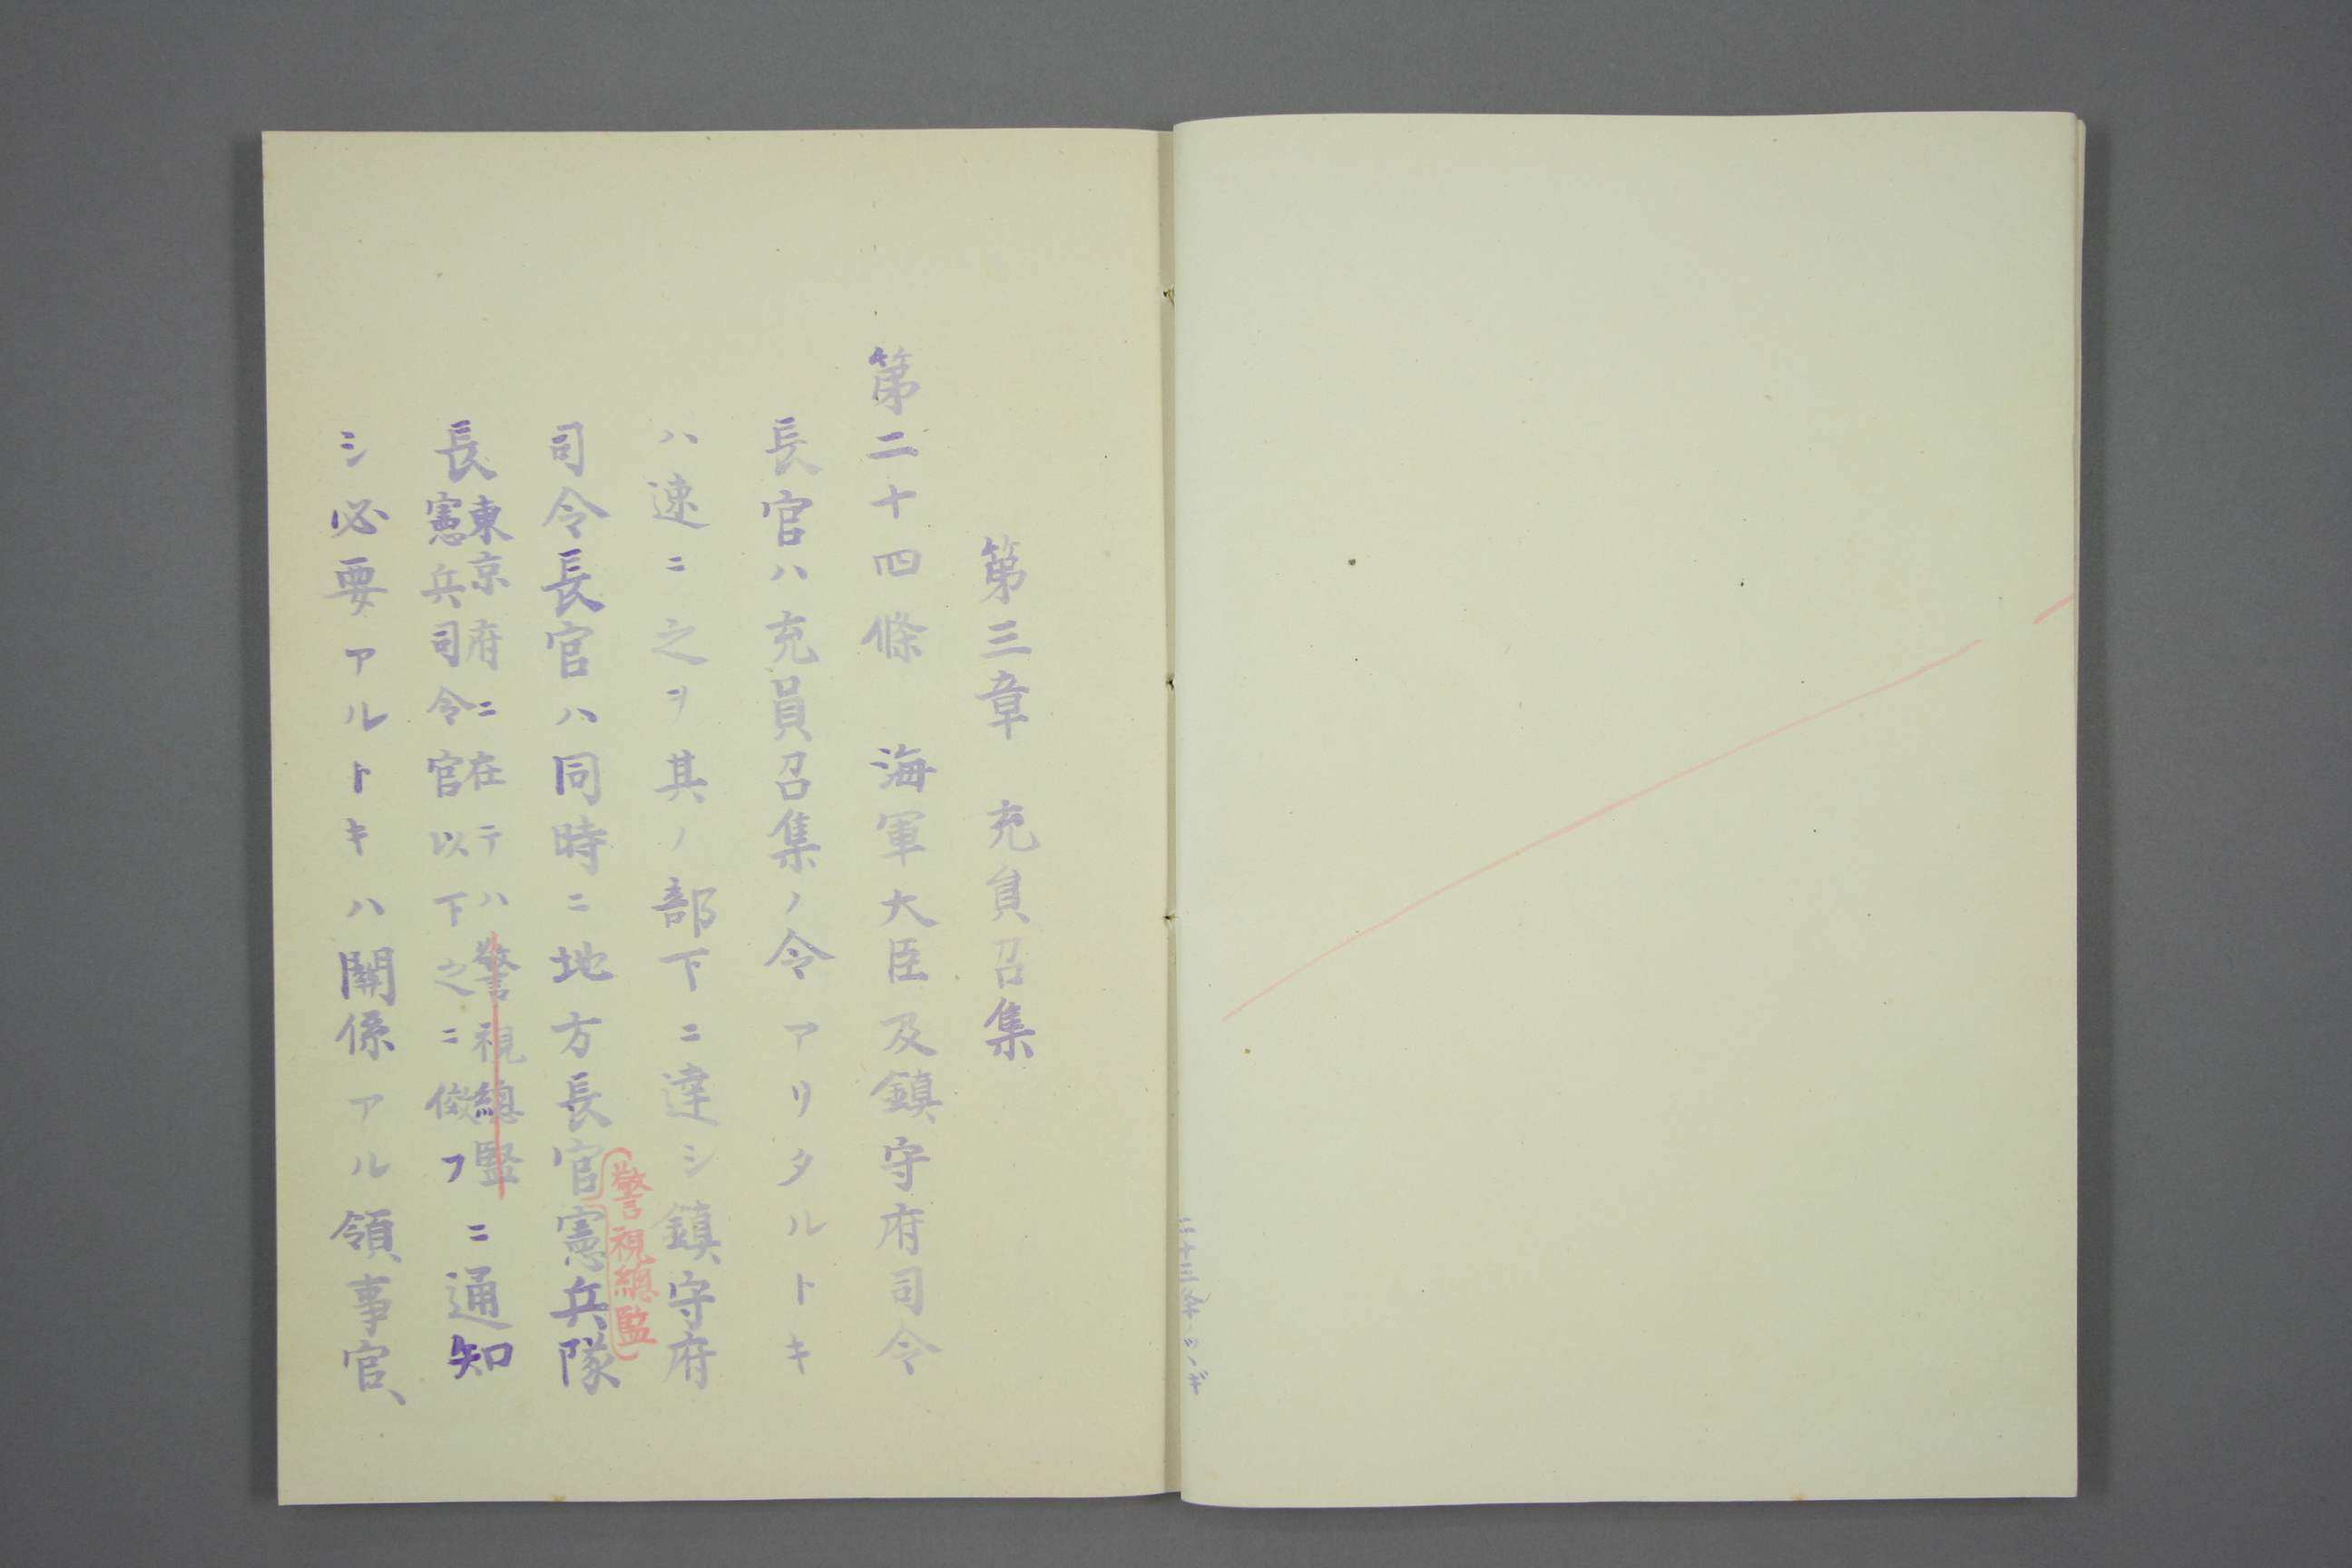 第三章　充員召集
第二十四條　海軍大臣及鎮守府司令
長官ハ充員召集ノ令アリタルトキ
ハ速ニ之ヲ其ノ部下ニ達シ鎮守府
司令長官ハ同時ニ地方長官憲兵隊
(警視總監)
長
東京府ニ在テハ警視總監
憲兵司令官以下之ニ傚フ
ニ通知
シ必要アルトキハ關係アル領事官、